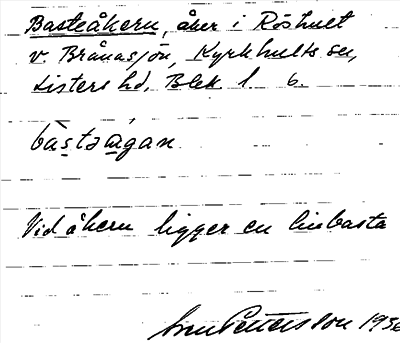 Basteåkern, åker i Röshult
v. Brånasjön, Kyrkhults sn,
Listers hd, Blek l. 6.
Vid åkern ligger en linbasta
Sven Pettersson 1936